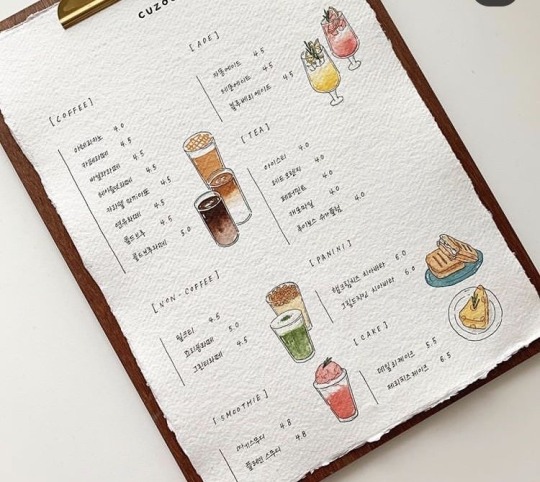 [COFFEE]
아메리카노 4.0
카페라떼 4.5
바닐라라떼 4.5
헤이즐넛라떼 4.5
카라멜 마끼아또 4.5
연유라떼 4.5
콜드브루 4.5
콜드브루라떼 5.0
[NON-COFFEE]
밀크티 4.5
5.0
그린티라떼 4.5
[SMOOTHIE]
딸기스무디 4.8
플레인 스무디 4.8
[ADE]
자몽에이드 4.5
레몬에이드 4.5
블루베리 에이드 4.5
[TEA]
아이스티 4.0
4.0
페퍼민트 4.0
캐모마일 4.0
루이보스 4.0
[PANINI]
치아바타 5.0
치아바타 5.0
[CAKE]
케이크 5.5
치즈케이크 6.5